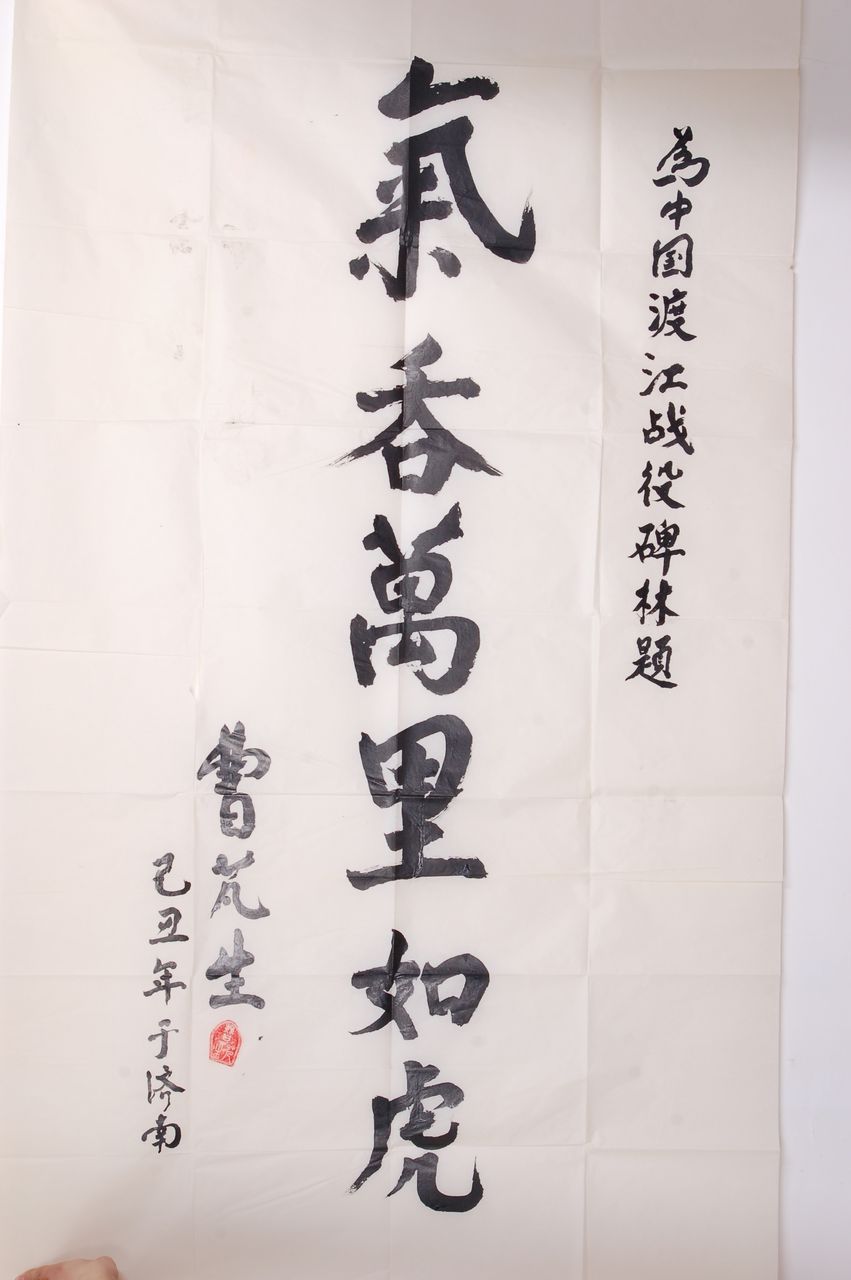 為中国渡江战役碑林题
氣吞萬里如虎
曹芃生
己丑年于济南